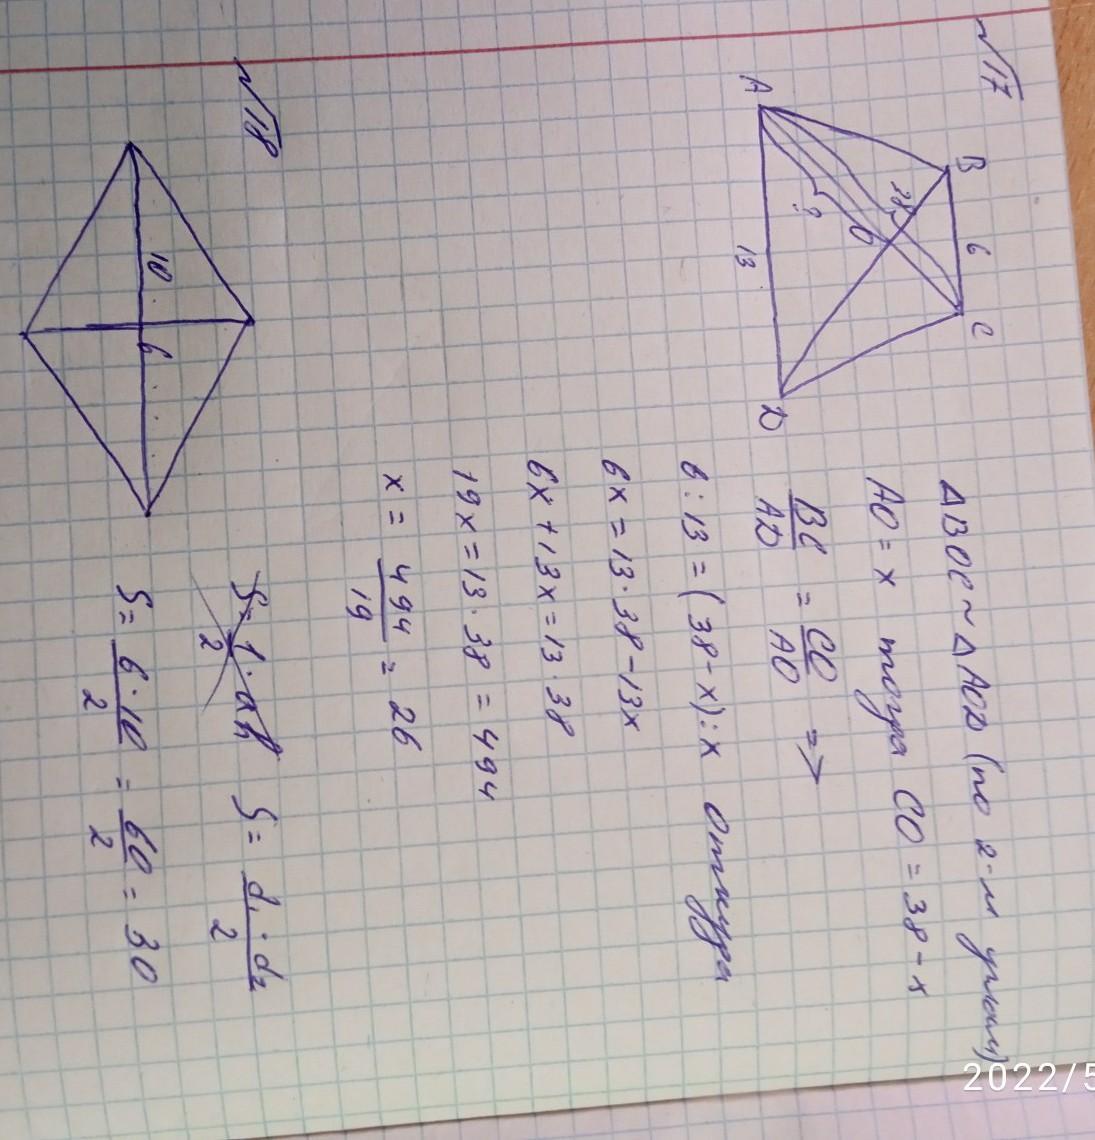 √17
B 6 C
38
O
?
A 13 D
ΔBOC ~ ΔAOD (по 2-м углам)
AO = x тогда CO = 38 - x
BC/AD = CO/AO =>
6 : 13 = (38 - x) : x откуда
6x = 13 · 38 - 13x
6x + 13x = 13 · 38
19x = 13 · 38 = 494
x = 494/19 = 26
√18
10
6
S = d₁ · d₂/2
S = 6 · 10/2 = 60/2 = 30
2022/5